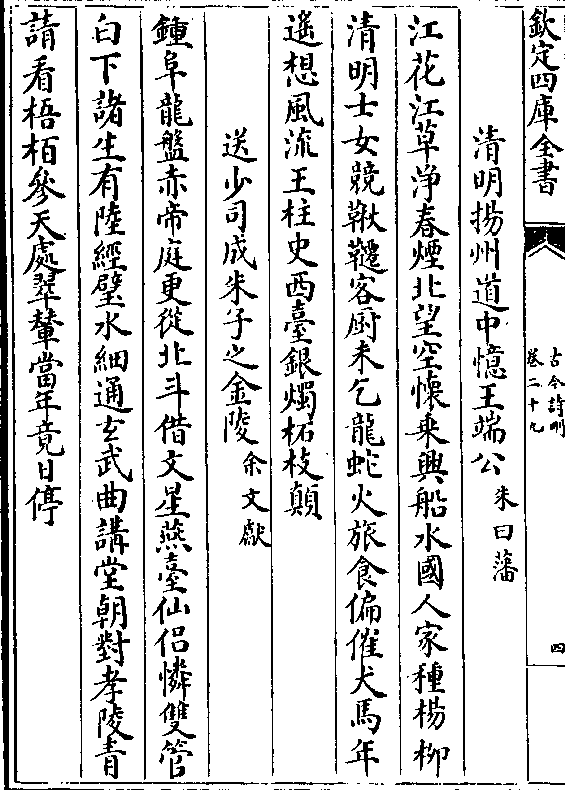 欽定四庫全書
古今詩刪
卷二十九
四
清明揚州道中憶王端公
朱曰藩
江花江草浄春煙北望空懷乗興船水國人家種楊柳
清明士女競鞦韆客厨未乞龍蛇火旅食偏催犬馬年
遥想風流王柱史西臺銀燭柘枝顛
送少司成朱子之金陵
余文獻
鍾阜龍盤赤帝庭更從北斗借文星燕臺仙侣憐雙管
白下諸生有陸經璧水細通玄武曲講堂朝對孝陵青
請看梧栢參天處翠輦當年竟日停